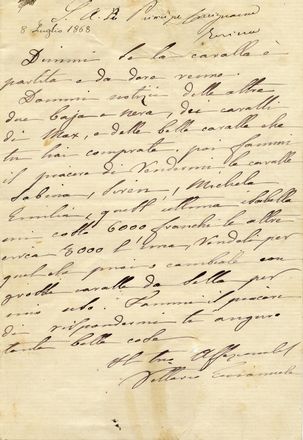 S. A. R. Principe
8 Luglio 1868
Dimmi se la cavalla e
partita e da dare remo.
Dammi notizie delle altre
due baja e nera, dei cavalli
di Max, e delle belle cavalle che
tu hai comprate, poi fammi
il piacere di vendermi le cavalle
Sabena, Siren, Michela
Emilia, quest'ultima Isabella
mi costò 6000 franchi le altre
circa 3000 l'una, vendeli per
qualche prezzo, cambiale con
grosse cavalle da sella per
mio uso. Fammi il piacere
di rispondermi le auguro
tante belle cose
Il tuo Affezionat
Vittorio Emanuele